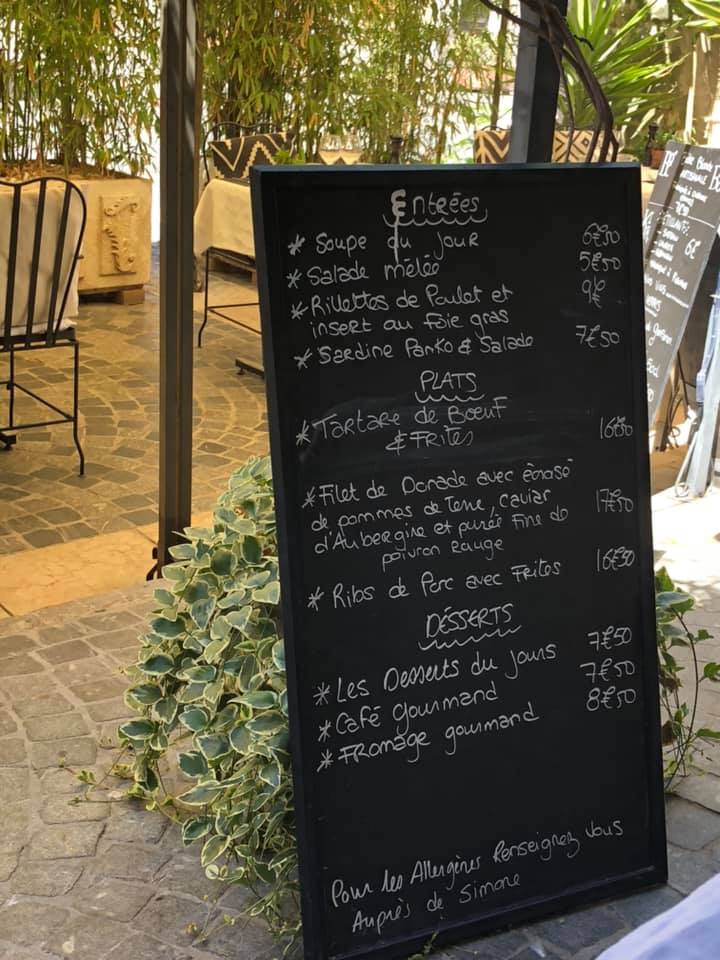 Entrées
* Soupe du jour 6€50
* Salade mêlée 5€50
* Rillettes de Poulet et 9€
insert au foie gras
* Sardine Panko & Salade 7€50
PLATS
* Tartare de Boeuf 16€50
& Frites
* Filet de Dorade avec écrasé
de pommes de terre, caviar 17€50
d'Aubergine et purée fine de
poivron rouge
* Ribs de Porc avec Frites 16€50
DÉSSERTS
* Les Desserts du jours 7€50
* Café gourmand 7€50
* Fromage gourmand 8€50
Pour les Allergènes Renseignez Vous
Auprès de Simone
6€